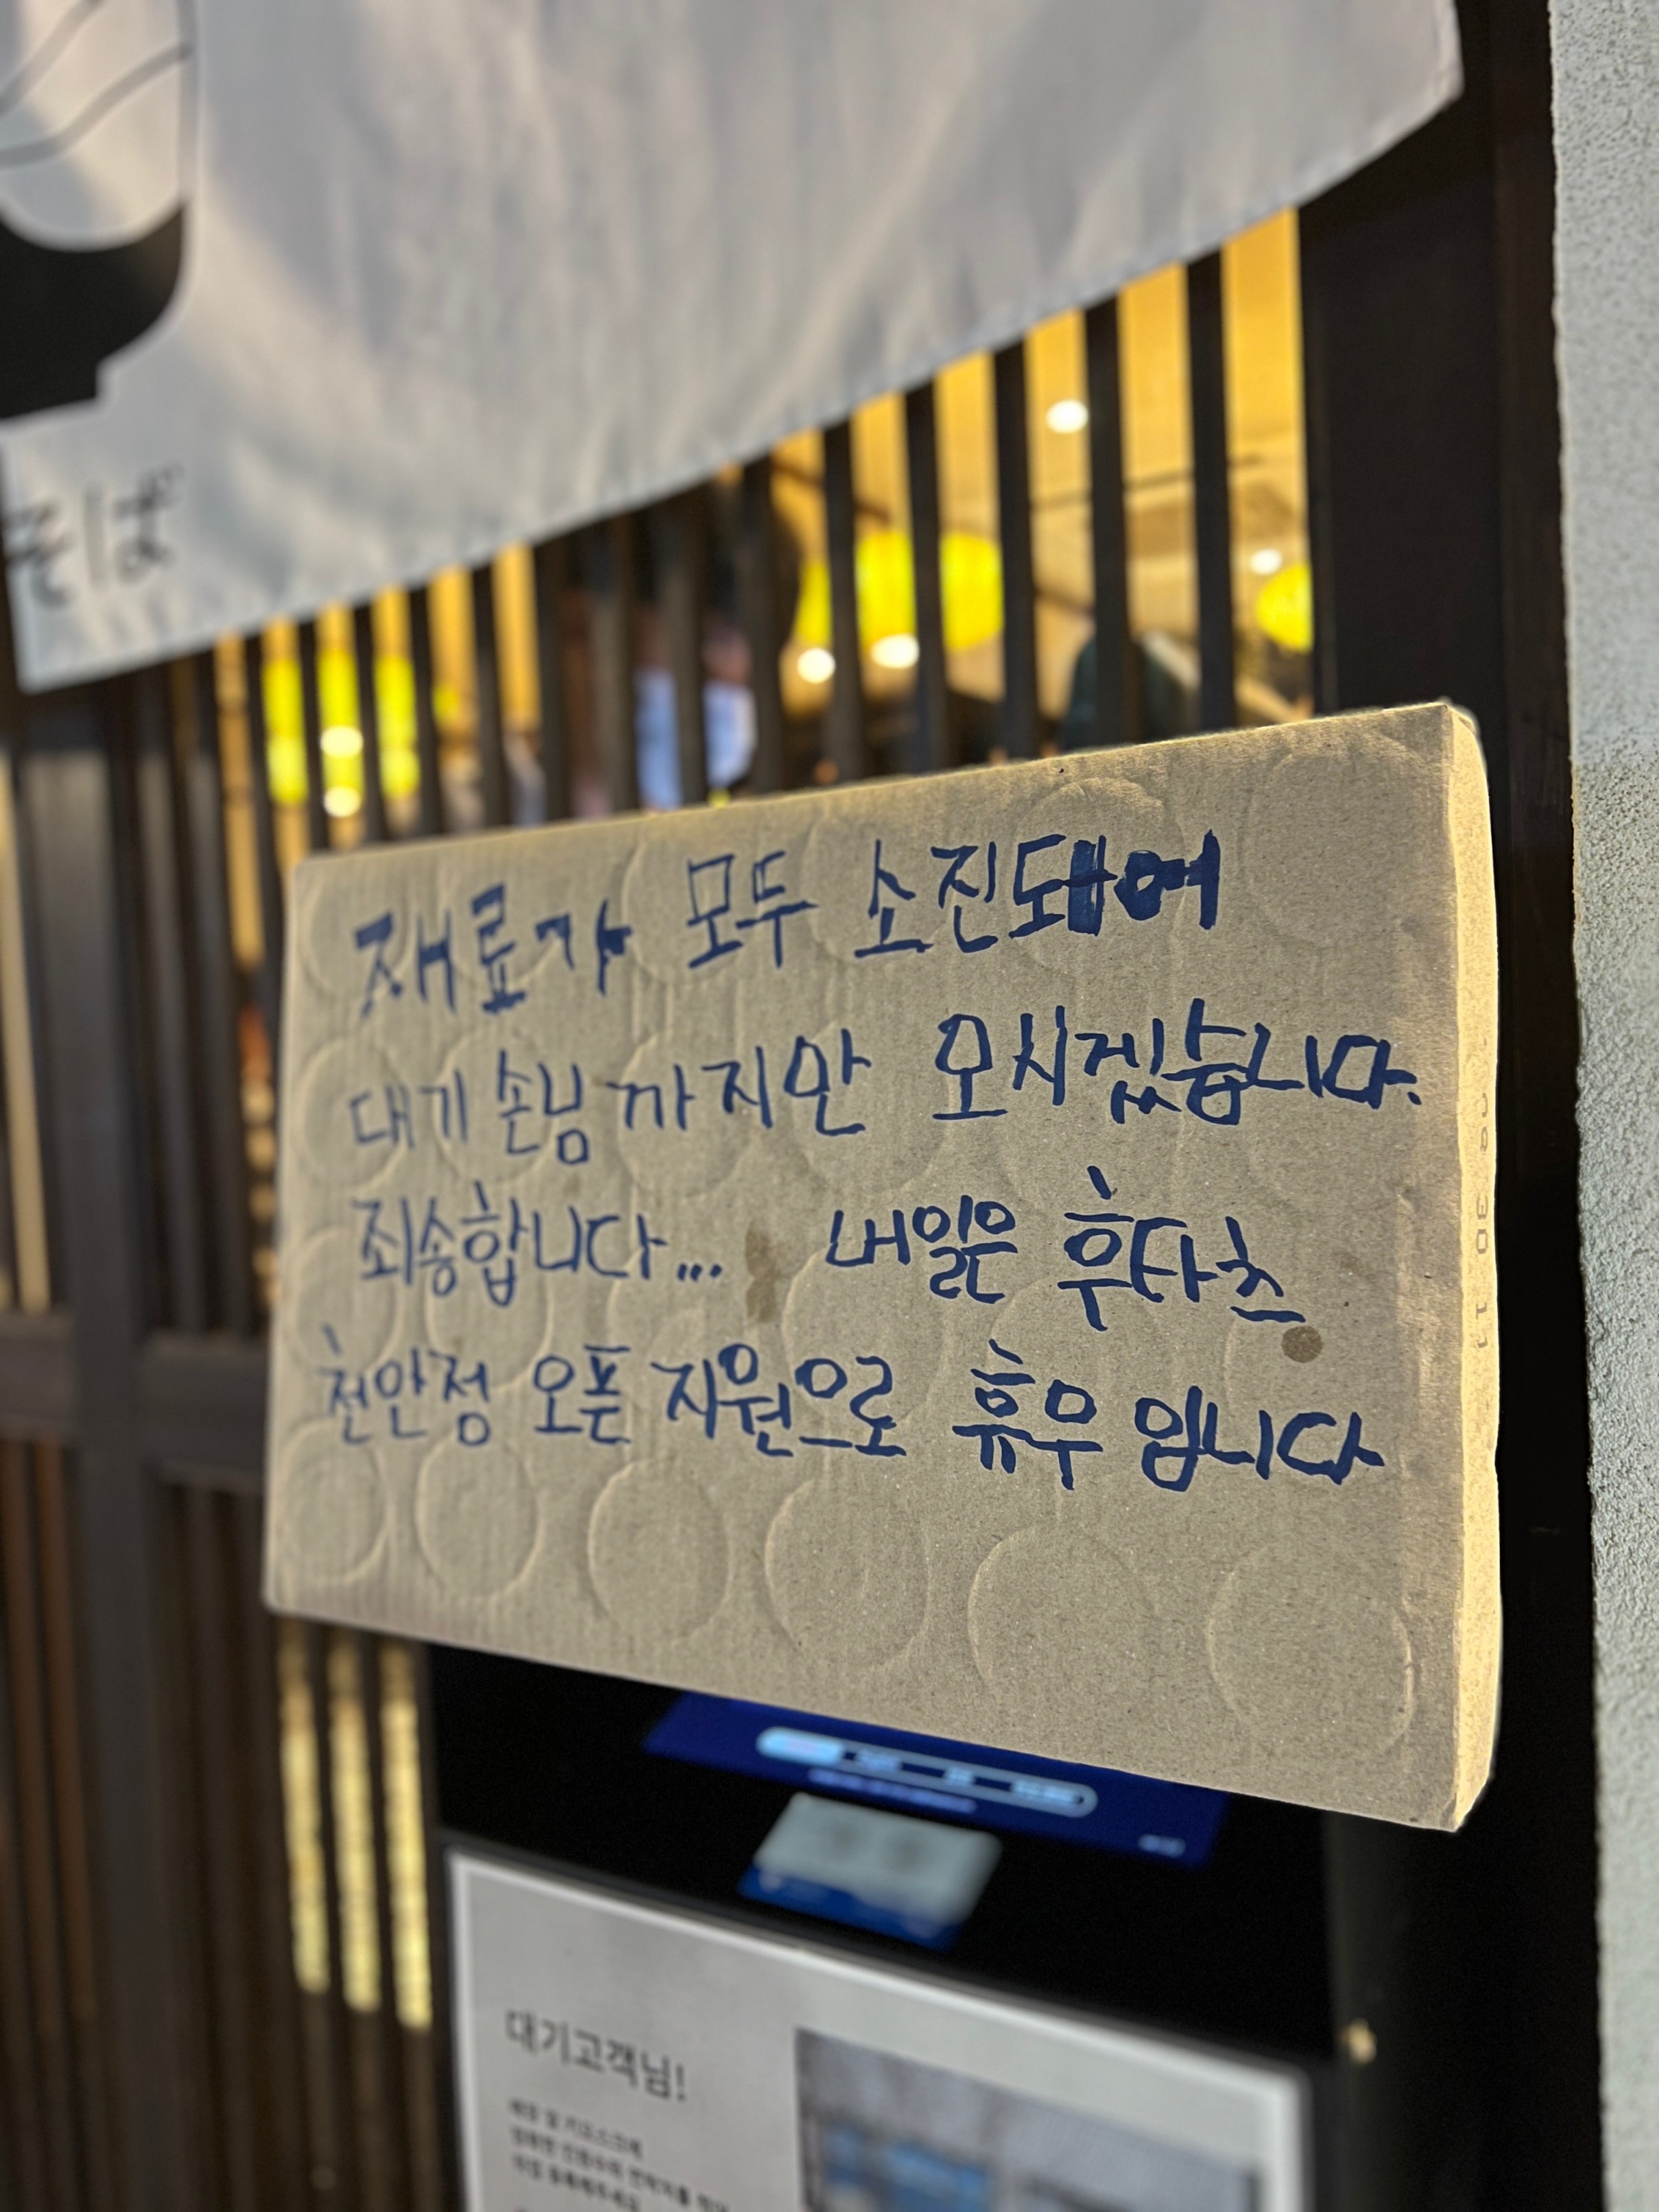 재료가 모두 소진되어
대기 손님까지만 모시겠습니다.
죄송합니다... 내일은 후타츠
천안점 오픈 지원으로 휴무 입니다
대기고객님!